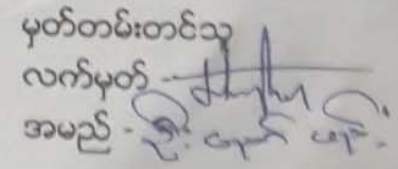 မှတ်တမ်းတင်သူ
လက်မှတ် -
အမည် - ဦး